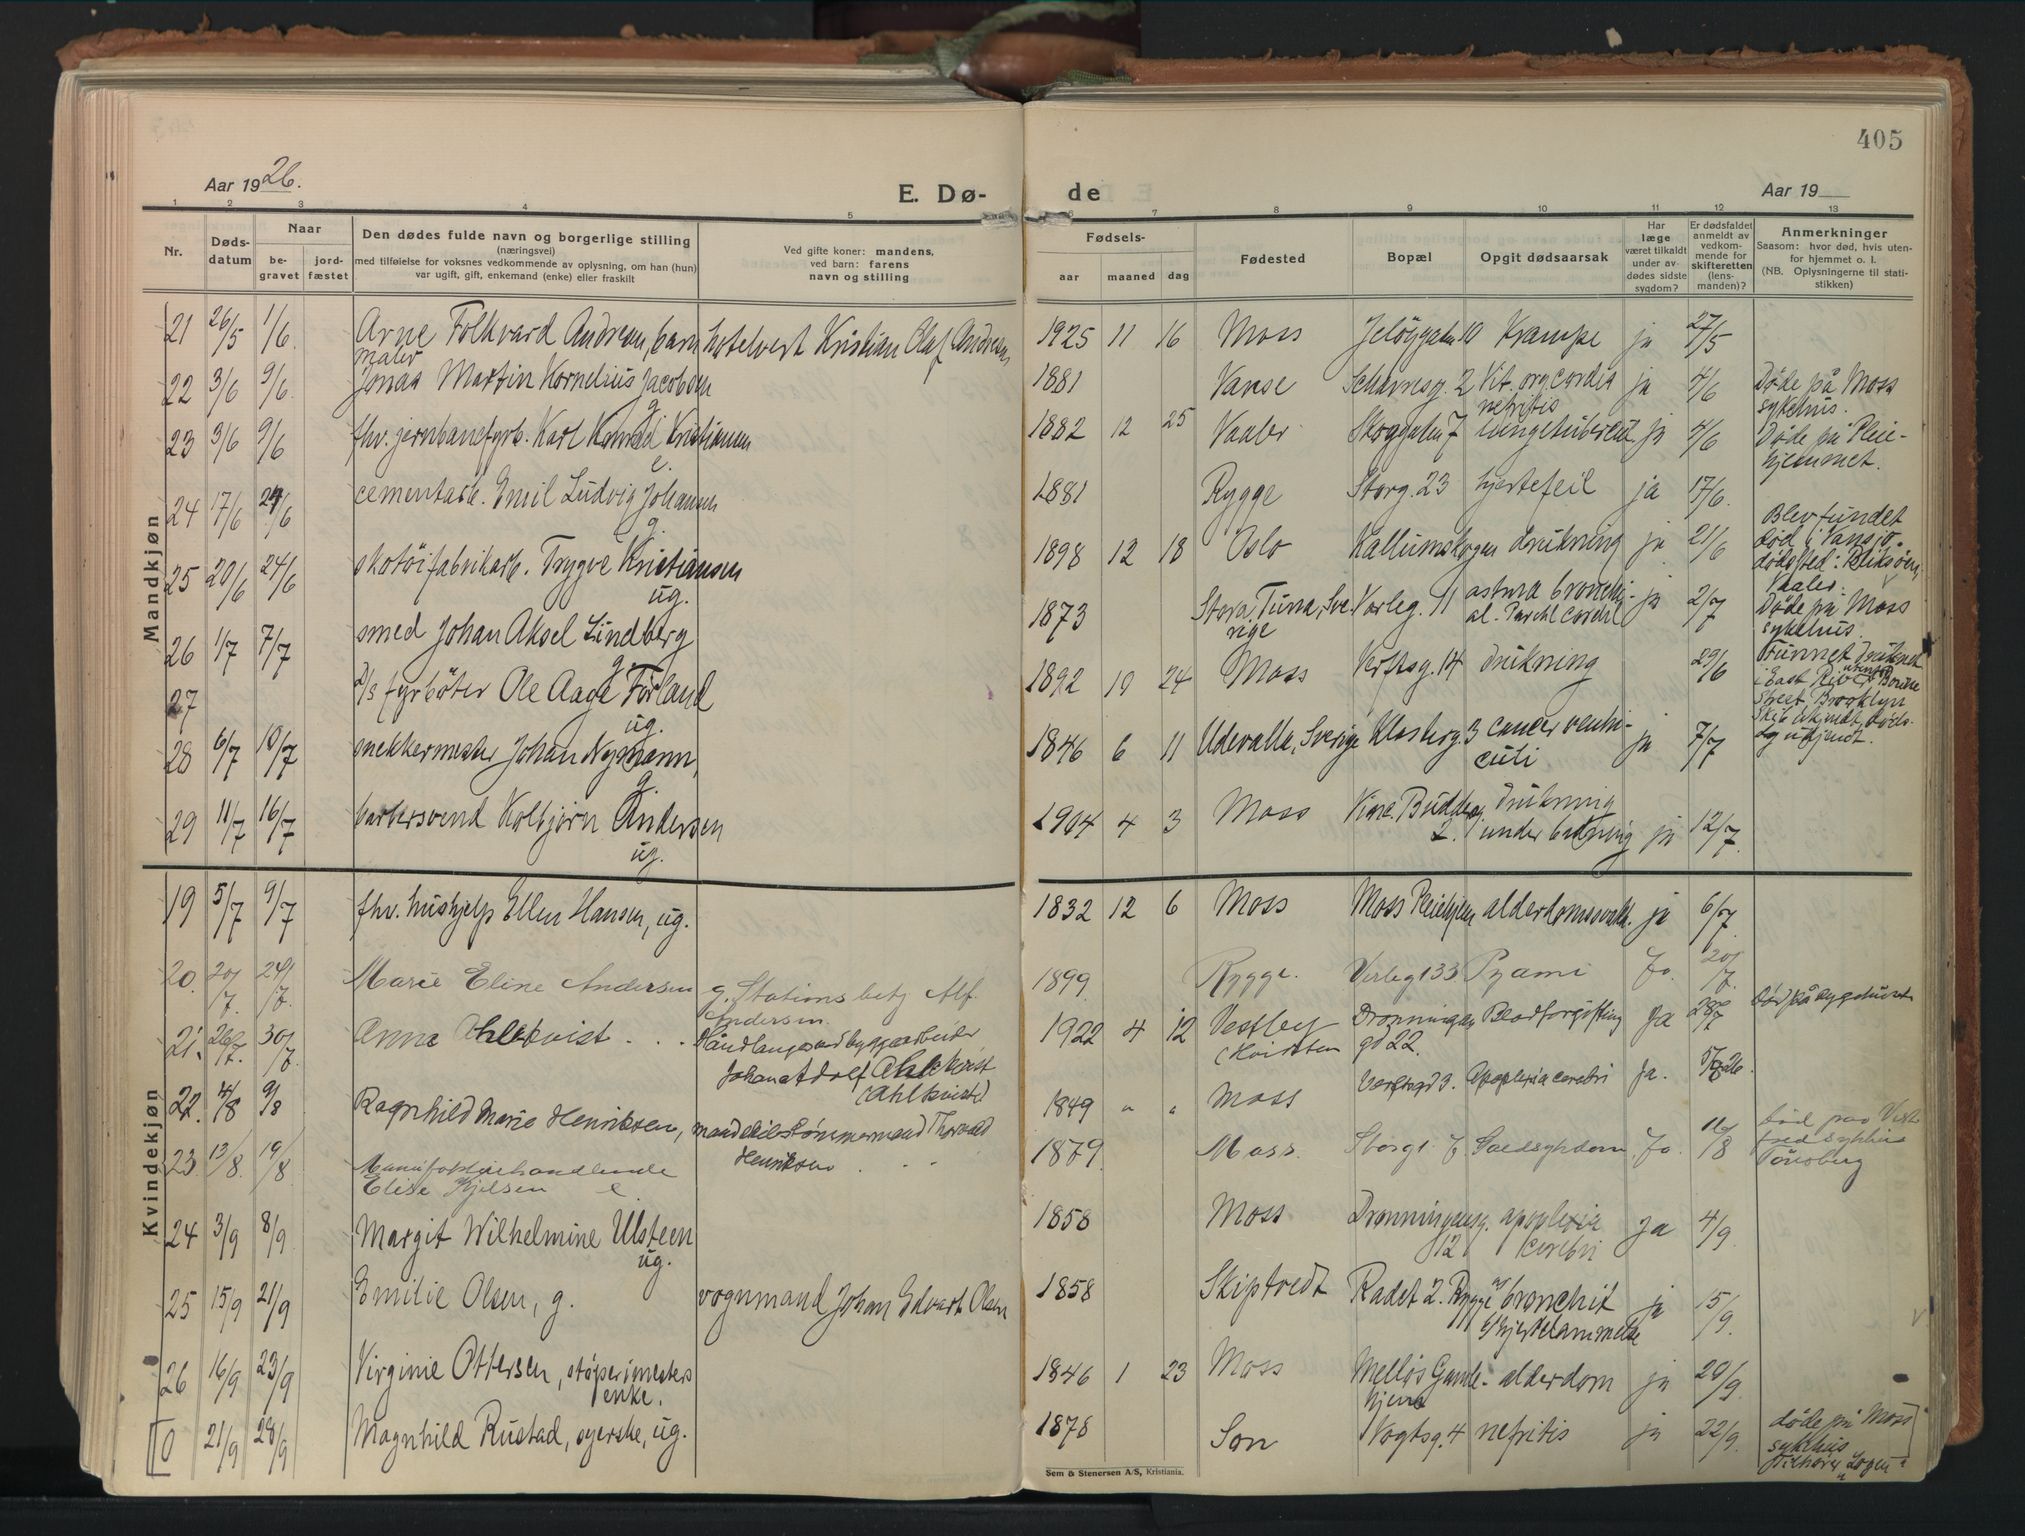 405
Aar 1926.
E. Dø-
de
Aar 19
1 2 3 4 5 6 7 8 9 10 11 12 13
Nr.
Døds-
datum
Naar
be-
gravet
jord-
fæstet
Den dødes fulde navn og borgerlige stilling
(næringsvei)
med tilføielse for voksnes vedkommende av oplysning, om han (hun)
var ugift, gift, enkemand (enke) eller fraskilt
Ved gifte koner: mandens,
ved barn: farens
navn og stilling
Fødsels-
aar maaned dag
Fødested
Bopæl
Opgit dødsaarsak
Har
læge
været tilkaldt
under av-
dødes sidste
sygdom?
Er dødsfaldet
anmeldt av
vedkom-
mende for
skifteretten
(lens-
manden)?
Anmerkninger
Saasom: hvor død, hvis uten-
for hjemmet o. l.
(NB. Oplysningerne til stati-
stikken)
Mandkjøn
21 26/5 1/6 Arne Folkvard Andresen, barn hotelvert Kristian Olaf Andresen 1925 11 16 Moss Jeløygaten 10 Krampe ja 27/5
22 3/6 9/6 maler
Jonas Martin Kornelius Jacobsen
g. 1881 Vanse 2 Vit. org. cordis
nefritis ja 4/6 Døde på Moss
sykehus.
23 3/6 9/6 fhv. jernbanefyrb. Karl Konrad Kristiansen
e. 1882 12 25 Vaaler Skoggaten 7 lungetubercul. ja 4/6 Døde på Pleie-
hjemmet.
24 17/6 24/6 cementarb. Emil Ludvig Johansen
g. 1881 Rygge Storg. 23 hjertefeil ja 17/6.
25 20/6 24/6 skotøifabrikarb. Trygve Kristiansen
ug. 1898 12 18 Oslo Kallumskogen drukning ja 21/6 Blev fundet
død i Vansjø.
dødssted:
Vaaler.
26 1/7 7/7 smed Johan Aksel Lindberg
g. 1873 Stora Tuna, Sve-
rige Varleg. 11 astma bronchi-
al. ja 2/7 Døde på Moss
sykehus.
27 D/S fyrbøter Ole Aage Førland
ug. 1892 10 24 Moss Verftsg. 14 drukning 29/6 Funnet druknet
i East River utenfor
Street, Brooklyn
døds-
dag ukjendt.
28 6/7 10/7 snekkermester Johan Nymann,
g. 1846 6 11 Udevalla, Sverige Klosterg. 3 cancer ventri-
culi ja 7/7
29 11/7 16/7 barbersvend Kolbjørn Andersen
ug. 1904 4 3 Moss Vinc. Buddes g.
2. drukning
under badning ja 12/7.
Kvindekjøn
19 5/7 9/7 fhv. hushjelp Ellen Hansen, ug. 1832 12 6 Moss Moss Pleiehjem alderdomssvakh. ja 6/7.
20. 20/7. 24/7. Marie Eline Andersen g. Stationsbetj Alf.
Andersen. 1899 Rygge. Varleg 133 Pyämi Ja. 20/7. Død på sygehuset
21. 26/7. 30/7. Anna Ahlkvist . . . Håndlanger ved byggearbeider
Johan Adolf Ahlkvist
(Ahlkvist) 1922 4 12 Vestby
(Hvidsten Dronningens
gd 22. Blodforgiftning Ja 28/7
22. 4/8 9/8 Ragnhild Marie Henriksen, Tømmermand Thorvald
Henriksen . . 1849 " " Moss 3. Apoplexia cerebri Ja.
23 13/8. 19/8. Manufakturhandlende
Elise Kjelsen e 1879. Moss. Storgt. 7 Ja. 16/8 Død paa Vest
fold sykehus
Tönsberg
24 3/9 8/9 Margit Wilhelmine Ulsteen
ug. 1858 Moss Dronningensg.
12 apoplexia
cerebri Ja 4/9.
25 15/9 21/9 Emilie Olsen, g. vognmand Johan Edvart Olsen 1858 Skiptvedt Radet 2. Rygge a) bronchit
b) hjertelammelse ja 15/9.
26 16/9 23/9 Virginie Ottersen, støperimesters
enke. 1846 1 23 Moss Melløs Gamle-
hjem alderdom ja 20/9.
0 21/9 28/9 Magnhild Rustad, syerske, ug. 1878 Son Vogtsg. 4 nefritis ja 22/9. døde på Moss
sykehus
tilhører
Sem & Stenersen A/S, Kristiania.